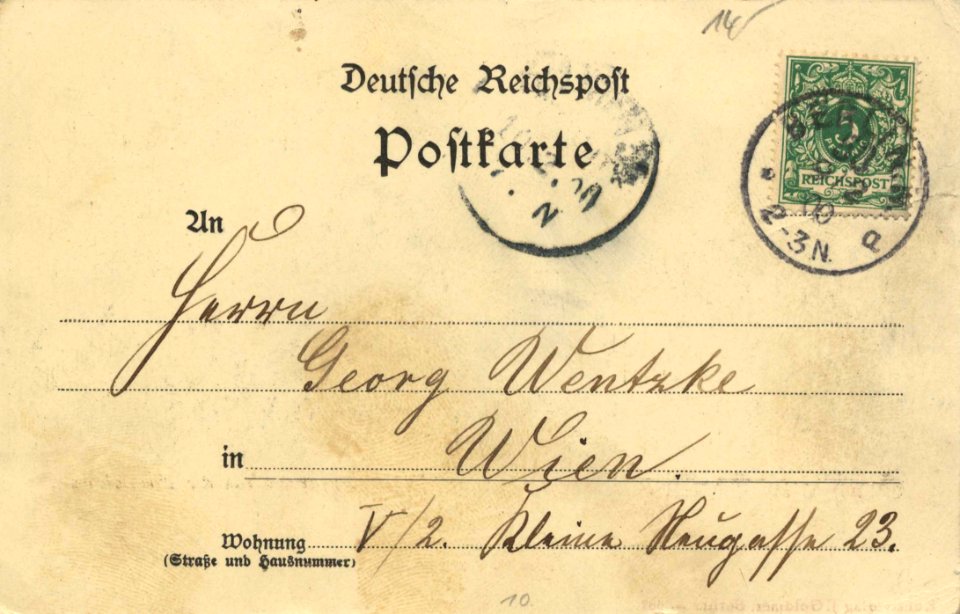 14
Deutsche Reichspost
Postkarte
5
REICHSPOST
BERLIN
2-3N.
An
Herrn
Georg Wentzke
in Wien.
Wohnung V/2. Kleine Neugasse 23.
(Straße und Hausnummer)
10.